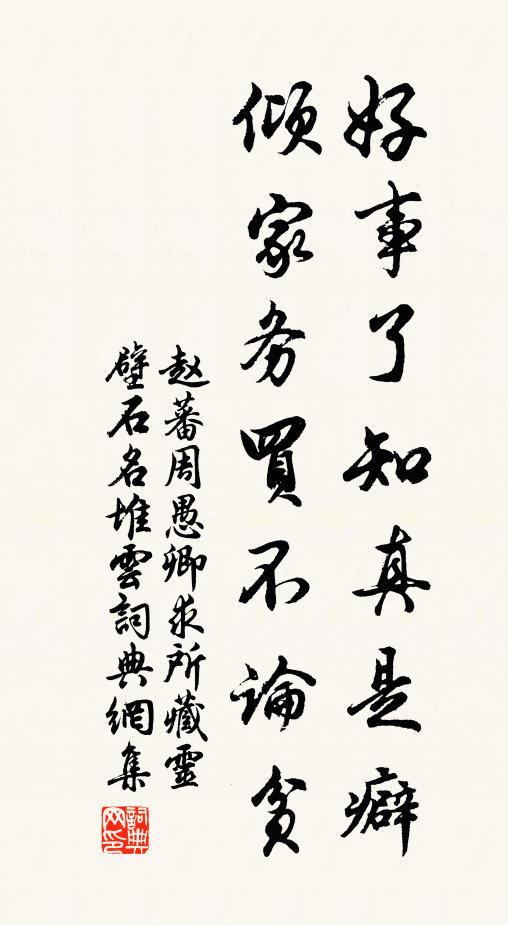 好事了知真是癖
倾家务買不論貧
赵蕃周愚卿求所藏靈
壁石名堆雲詞典網集
詞典網印